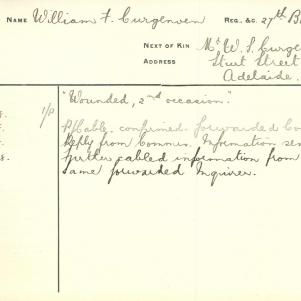 NAME William F. Curgenven REG. &C. 27th B
NEXT OF KIN Mr W. S. Curge
ADDRESS Sturt Street
Adelaide.
"Wounded, 2nd occasion."
1/P
Cable. confirmed. forwarded Co
Reply from Commrs. Information sen
Further cabled information from
same forwarded Inquirer.